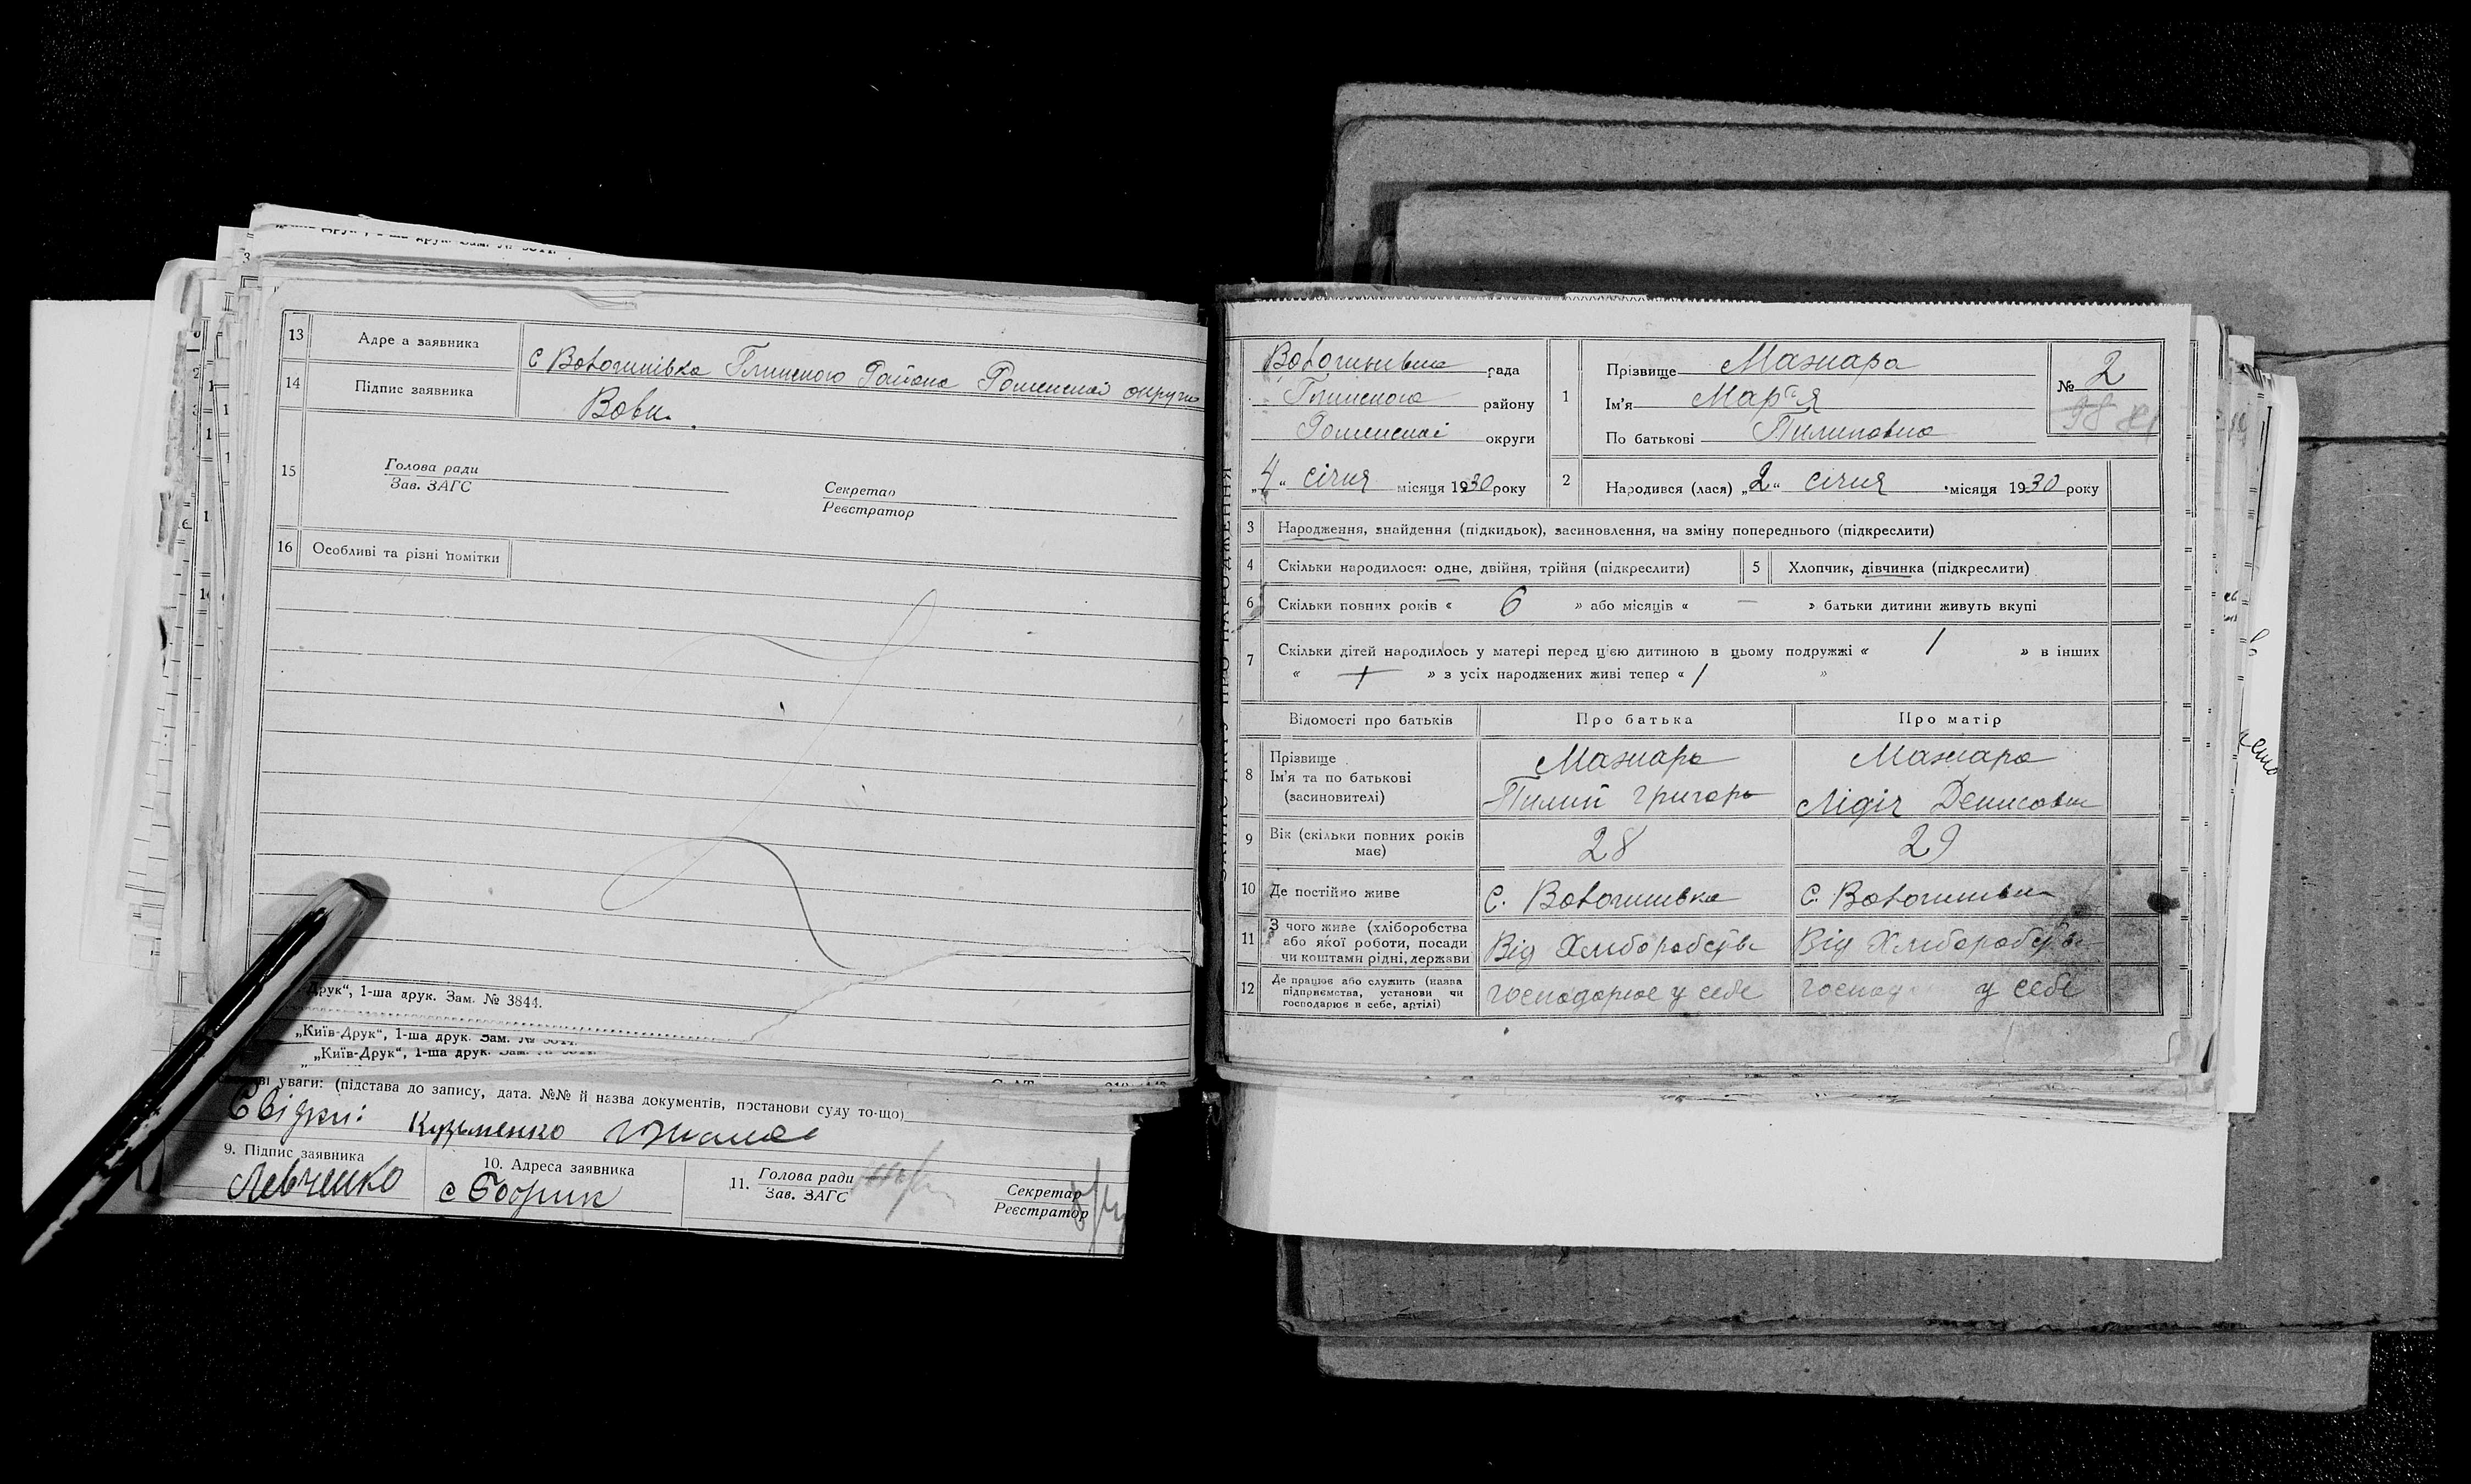 13 Адре а заявника с Вовчишівка Глинского Района Роменской округи
14 Підпис заявника Вовк.
15 Голова ради
Зав. ЗАГС
Секретар
Реєстратор
16 Особливі та різні помітки
Друк“, 1-ша друк. Зам. № 3844.
„Київ-Друк“, 1-ша друк. Зам. №
„Київ-Друк“, 1-ша друк.
уваги: (підстава до запису, дата. №№ й назва документів, постанови суду то-що)
Свідки: Кузьменко
9. Підпис заявника
Левченко
10. Адреса заявника
11. Голова ради
Зав. ЗАГС
Секретар
Реєстратор
рада
Глинского району
Роменскої округи
„4“ січня місяця 1930 року
1 Прізвище Мажара
Ім'я Мар'я
По батькові Пилиповна
№ 2
2 Народився (лася) „2“ січня місяця 1930 року
3 Народження, знайдення (підкидьок), засиновлення, на зміну попереднього (підкреслити)
4 Скільки народилося: одне, двійня, трійня (підкреслити)
5 Хлопчик, дівчинка (підкреслити)
6 Скільки повних років « 6 » або місяців « — » батьки дитини живуть вкупі
7 Скільки дітей народилось у матері перед цією дитиною в цьому подружжі « 1 » в інших
« + » з усіх народжених живі тепер « 1 »
Відомості про батьків Про батька Про матір
8 Прізвище Мажара Мажара
Ім'я та по батькові
(засиновителі) Пилип Григорь Лідія Денисовн
9 Вік (скільки повних років
має) 28 29
10 Де постійно живе с. с.
11 З чого живе (хліборобства
або якої роботи, посади
чи коштами рідні, держави Від Хліборобств Від Хліборобств
12 Де працює або служить (назва
підприємства, установи чи
господарює в себе, артілі) господарює у себе у себе